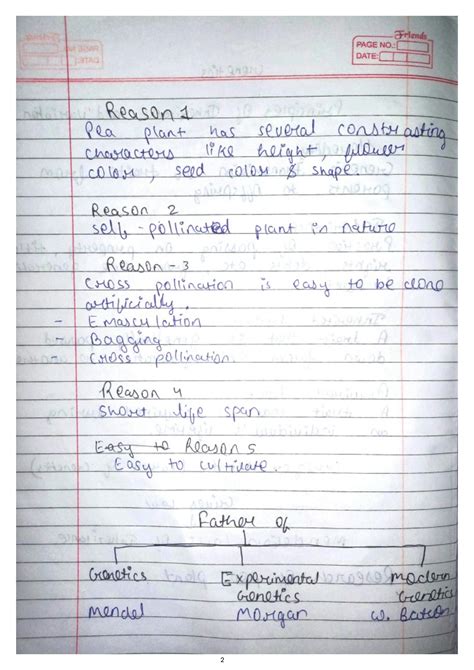 Friends
PAGE NO.:
DATE:
Reason 1
Pea plant has several constrasting
characters like height, flower
color, seed color & shape
Reason 2
self-pollinated plant in nature
Reason-3
Cross pollination is easy to be done
artificially.
- Emasculation
- Bagging
- Cross pollination.
Reason 4
Short life span
Easy to Reason 5
Easy to cultivate.
Father of
Genetics Experimental Modern
Genetics Genetics
Mendel Morgan W. Batson
2